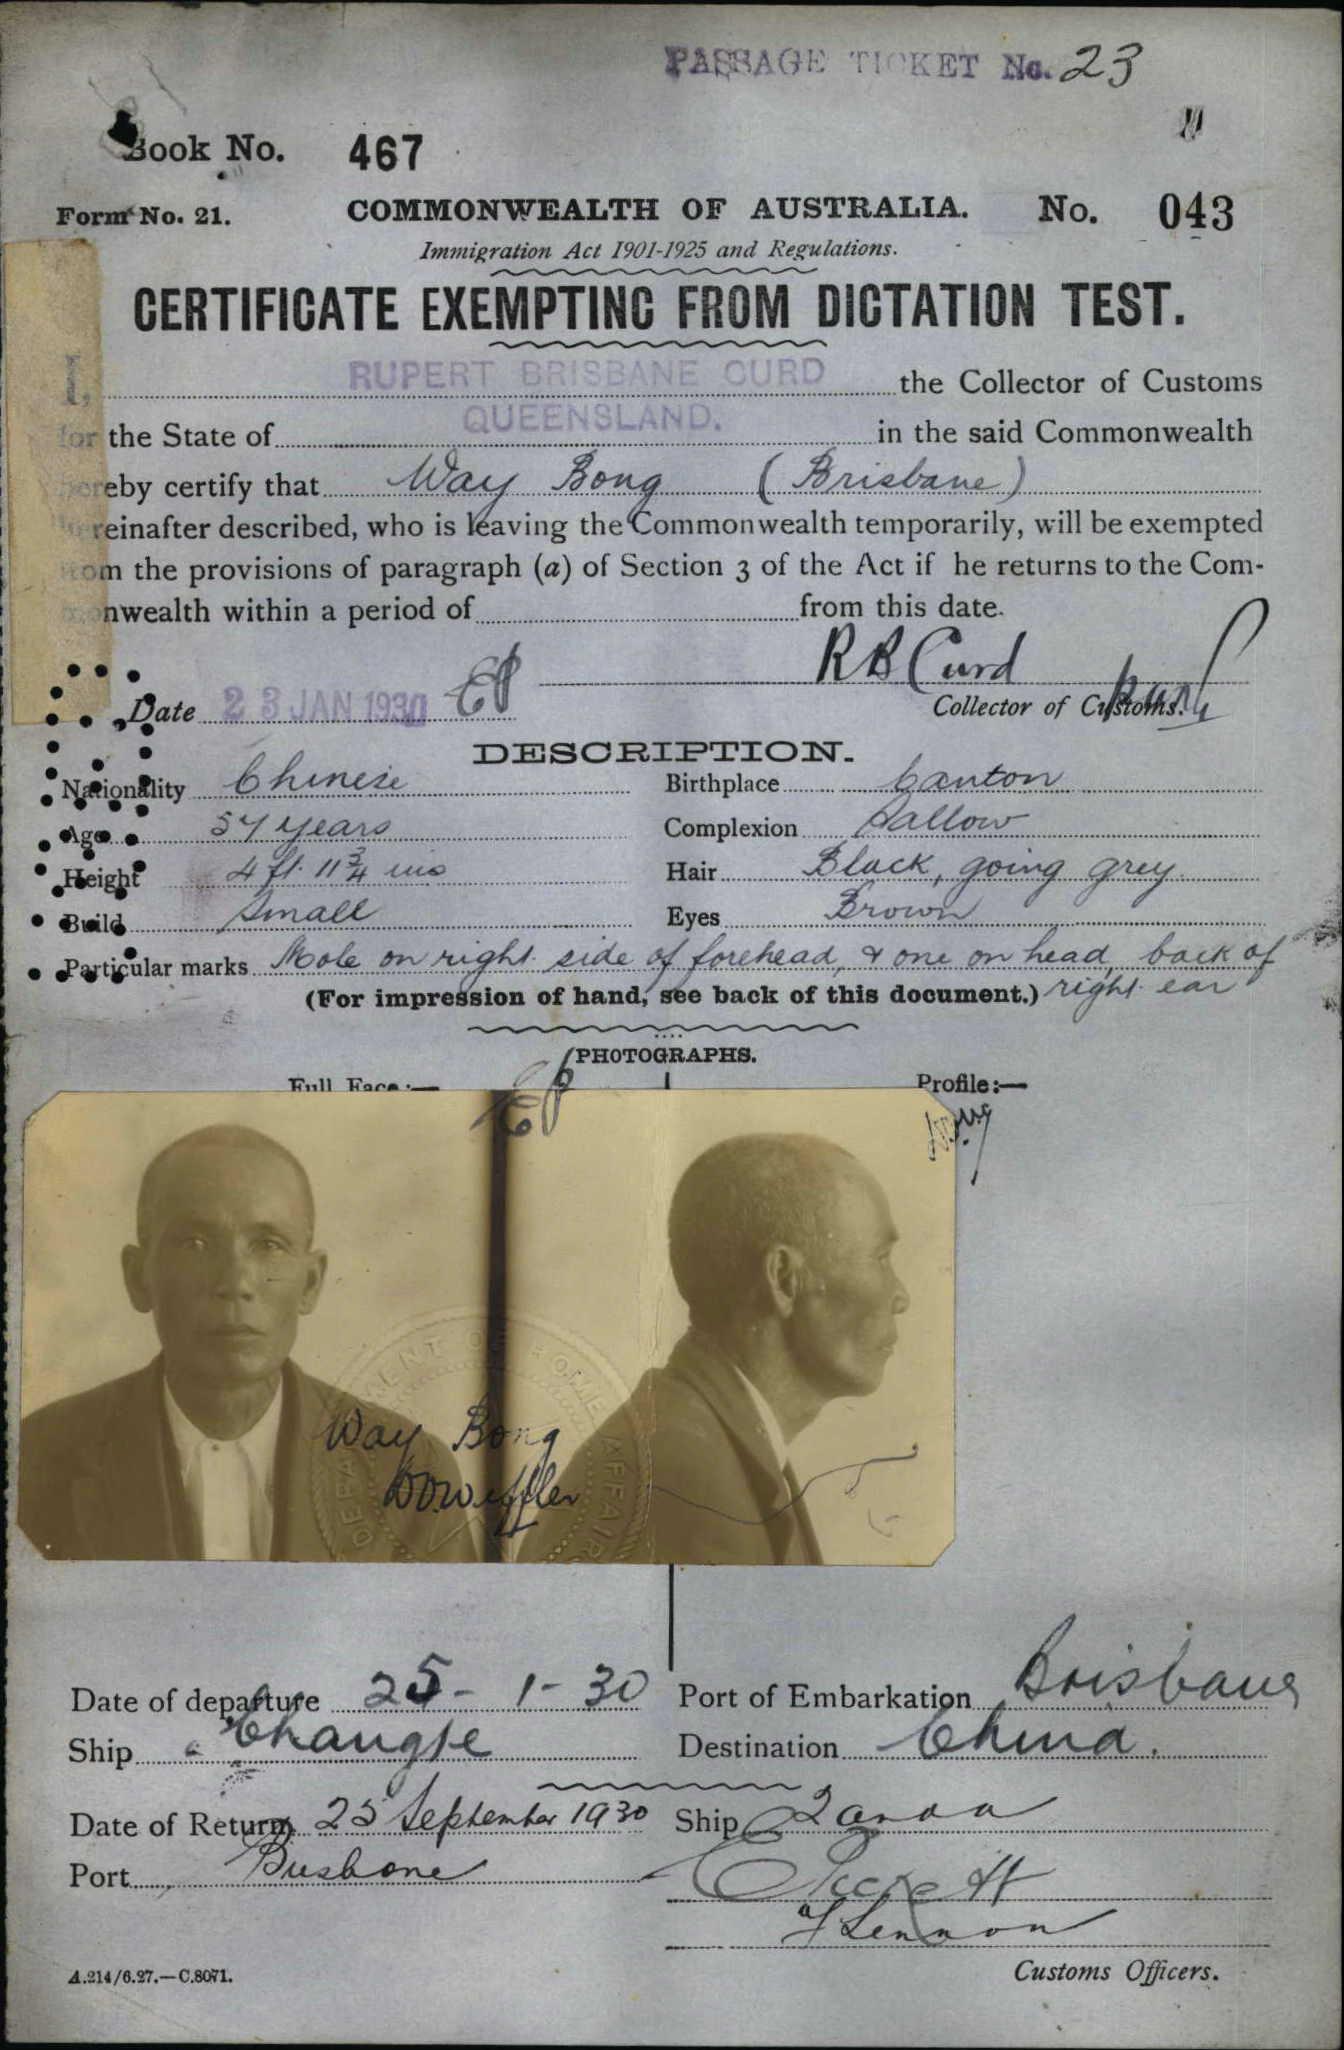 PASSAGE TICKET No. 23
Book No. 467
Form No. 21. COMMONWEALTH OF AUSTRALIA. No. 043
Immigration Act 1901-1925 and Regulations.
CERTIFICATE EXEMPTING FROM DICTATION TEST.
I, RUPERT BRISBANE CURD the Collector of Customs
for the State of QUEENSLAND. in the said Commonwealth
hereby certify that Way Bong (Brisbane)
hereinafter described, who is leaving the Commonwealth temporarily, will be exempted
from the provisions of paragraph (a) of Section 3 of the Act if he returns to the Com-
monwealth within a period of from this date.
R B Curd
Date 23 JAN 1930 Collector of Customs.
DESCRIPTION.
Nationality Chinese Birthplace Canton
Age 57 years Complexion Sallow
Height 4 ft. 11 3/4 ins Hair Black, going grey
Build Small Eyes Brown
Particular marks Mole on right side of forehead, & one on head, back of
(For impression of hand, see back of this document.) right ear
PHOTOGRAPHS.
Full Face:— Profile:—
DEPARTMENT OF HOME AFFAIRS
Way Bong
Date of departure 25-1-30 Port of Embarkation Brisbane
Ship Changte Destination China.
Date of Return 25 September 1930 Ship Tanda
Port Brisbane
Customs Officers.
A.214/6.27.—C.8071.